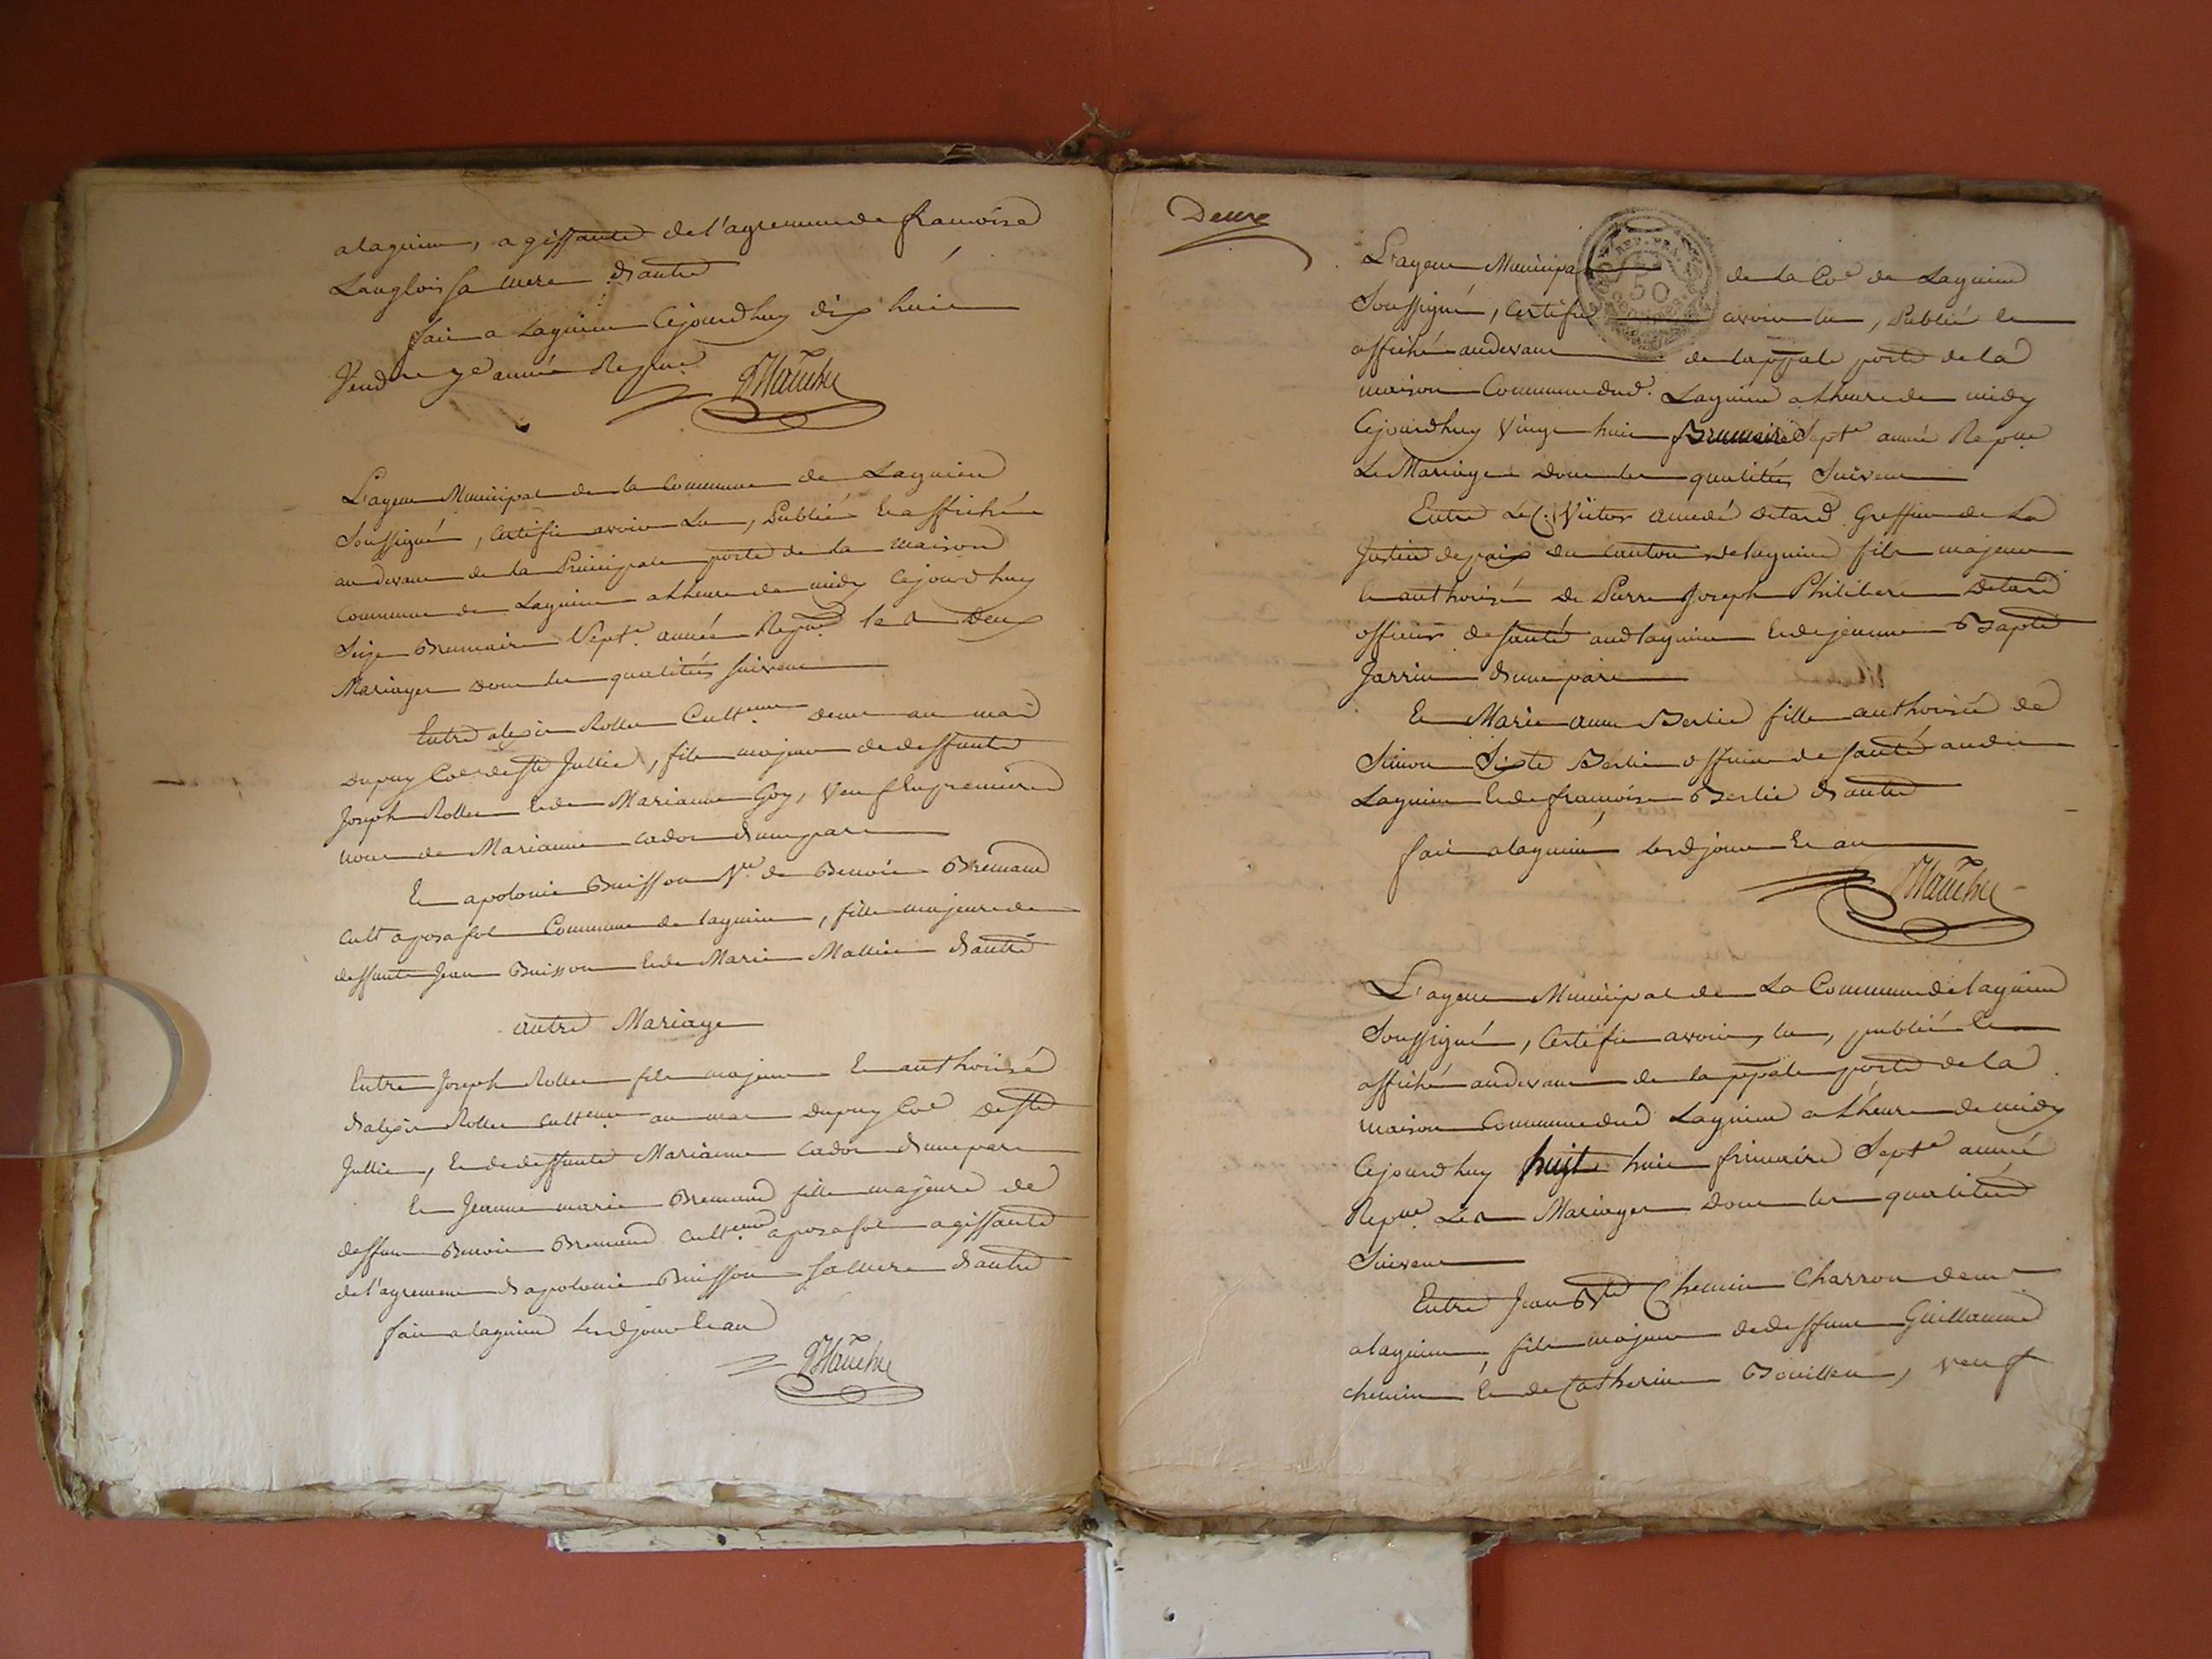 a lagnieu, agissante de l'agrement de francoise
Langlois sa mere d'autre
fait a Lagnieu Cejourdhuy dix huit
Vendre 7e année Repne
L'agent Municipal de la Commune de Lagnieu
Soussigné, Certifie avoir Lu, Publié et affiché
au devant de la Principale porte de la maison
Commune de Lagnieu a l'heure de midy cejourdhuy
Seize Brumaire Septe année Repne les Deux
Mariages dont les qualités suivent
Entre alexis Rollet Cultteur demt au mas
Dupuy Coe de Ste Jullie, fils majeur de deffunts
Joseph Rollet et de Marianne Goy, veuf En premiere
noce de Marianne cador d'une part
Et apolonie Buisson Ve de Benoit Bremand
cult a posafol Commune de lagnieu, fille majeure de
deffunts Jean Buisson et de Marie Mallein d'autre
autre Mariage
Entre Joseph Rollet fils majeur et authorisé
d'alexis Rollet cultteur au mas Dupuy Coe de Ste
Jullie, et de deffunte Marianne Cador d'une part
Et Jeanne marie Bremand fille majeure de
deffunt Benoit Bremand cultteur a posafol agissante
de l'agrement d'apolonie Buisson sa mere d'autre
fait a lagnieu lesd jour et an
Deux
REP. FRA.
50
L'agent Municipal de la Coe de Lagnieu
Soussigné, Certifie avoir lu, Publié et
affiché au devant de la ppale porte de la
maison Commune dud. Lagnieu a l'heure de midy
Cejourdhuy Vingt huit Brumaire Septe année Repne
Le Mariage dont les qualités Suivent
Entre Le C. Victor amedé Detard Greffier de La
Justice de paix du canton de lagnieu fils majeur
et authorisé de Pierre Joseph Philibert Detard
officier de santé aud lagnieu et de jeanne Bapte
Jarrin d'une part
Et Marie anne Berlie fille authorisée de
Simon Sixte Berlie officier de santé audit
Lagnieu et de francoise Berlie d'autre
fait a lagnieu lesd jour et an
L'agent Municipal de La Commune de lagnieu
Soussigné, Certifie avoir lu, publié et
affiché au devant de la ppale porte de la
maison Commune dud Lagnieu a l'heure de midy
Cejourdhuy huit frimaire Septe année
Repne Les Mariages dont les qualités
Suivent
Entre Jean Bte Chemin Charron demt
a lagnieu, fils majeur de deffunt Guillaume
chemin et de Catherine Bouilleu, veuf